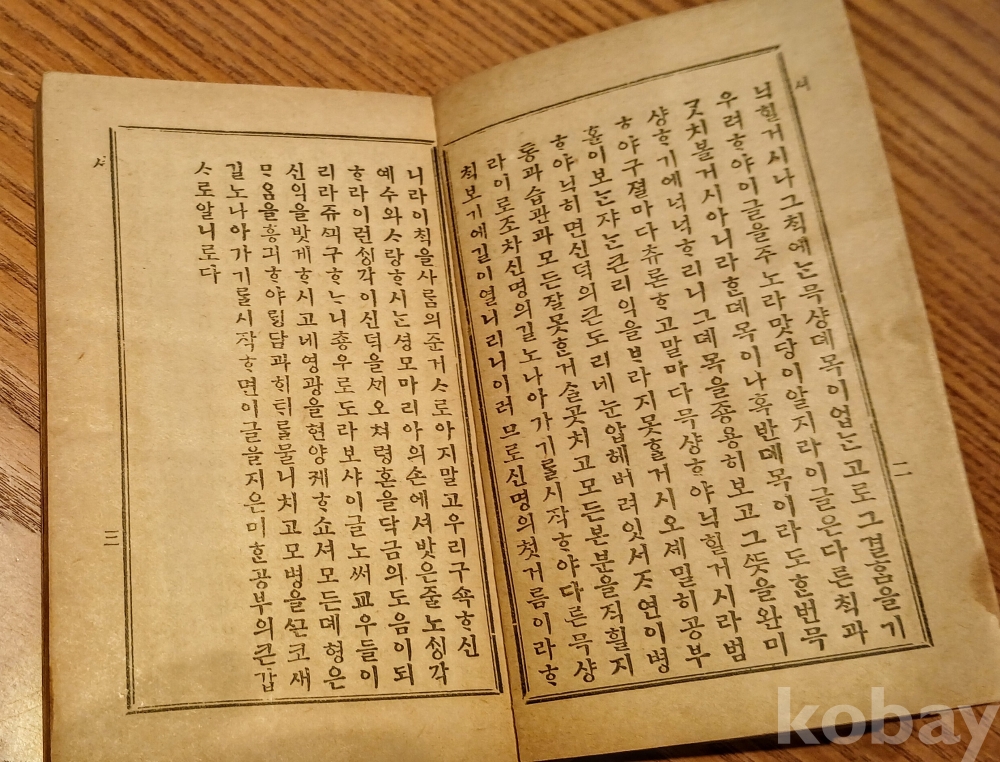 셔
닉힐거시나그칙에ᄂᆞᆫ묵샹뎨목이업ᄂᆞᆫ고로그결흠을기
우려ᄒᆞ야이글을주노라맛당이알지라이글은다른칙과
ᄀᆞᆺ치볼거시아니라ᄒᆞᆫ뎨목이나혹반뎨목이라도ᄒᆞᆫ번묵
샹ᄒᆞ기에넉넉ᄒᆞ리니그뎨목을죵용히보고그ᄯᅳᆺ을완미
ᄒᆞ야구졀마다츄론ᄒᆞ고말마다묵샹ᄒᆞ야닉힐거시라범
홀이보ᄂᆞᆫ쟈ᄂᆞᆫ큰리익을ᄇᆞ라지못ᄒᆞᆯ거시오셰밀히공부
ᄒᆞ야닉히면신덕의큰도리네눈압헤버려잇서ᄌᆞ연이병
통과습관과모든잘못ᄒᆞᆫ거슬곳치고모든본분을직힐지
라이로조차신명의길노나아가기ᄅᆞᆯ시작ᄒᆞ야다른묵샹
칙보기에길이열니리니이러므로신명의첫거름이라ᄒᆞ
二
셔
니라이칙을사ᄅᆞᆷ의준거ᄉᆞ로아지말고우리구쇽ᄒᆞ신
예수와ᄉᆞ랑ᄒᆞ시ᄂᆞᆫ셩모마리아의손에셔밧은줄노ᄉᆡᆼ각
ᄒᆞ라이런ᄉᆡᆼ각이신덕을셰오쳐령혼을닥금의도음이되
리라쥬ᄭᅴ구ᄒᆞᄂᆞ니춍우로도라보샤이글노써교우들이
신익을밧게ᄒᆞ시고네영광을현양케ᄒᆞ쇼셔모든뎨형은
ᄆᆞᄋᆞᆷ을흥긔ᄒᆞ야링담과ᄒᆡᄐᆡᄅᆞᆯ물니치고모병을ᄭᅳᆫ코새
길노나아가기ᄅᆞᆯ시작ᄒᆞ면이글을지은미ᄒᆞᆫ공부의큰갑
ᄉᆞ로알니로다
三
kobay